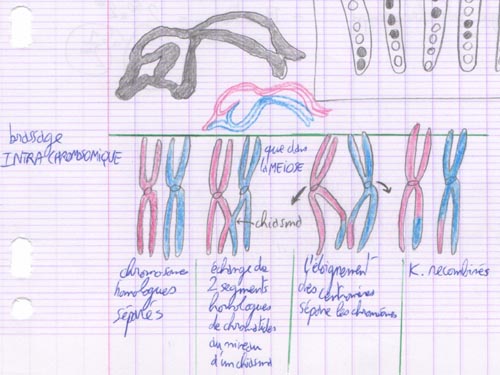 brassage
INTRA CHROMOSOMIQUE
que dans
la MEIOSE
chiasma
chromosomes
homologues
séparés
échange de
2 segments
homologues
de chromatides
au niveau
d'un chiasma
L'éloignement
des centromères
sépare les chromosomes
K. recombinés